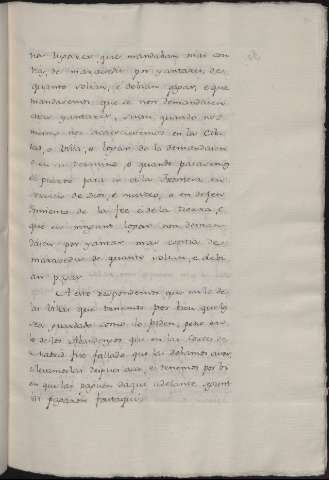 tros lugares que mandaban mas con
tia, de maravedis por yantares, de
quanto solian, e debian pagar, e que
mandaremos que se non demandasen
otras yantares, sinon quando nos
mismo nos acaeciesemos en la Cib-
dad, o Villa, o logar do la demandasen
o en su termino, o quando pararemos
el puerto para ir a la frontera en
servicio de Dios, e nuestro, o en defen
dimiento de la fee e de la tierra, e
que en ningunt logar non deman-
dasen por yantar mas contia de
maravedis de quanto solian, e debi-
an pagar
A esto respondemos que en lo de
las Villas que tenemos por bien que lo
sea guardado como lo piden, pero en
lo de los Abadengos que en las Cortes de
Madrid fue fallado que las debamos aver,
e levamoslas despues aca, e tenemos por bi
en que las paguen daqui adelante, segunt
las pagaron fastaqui